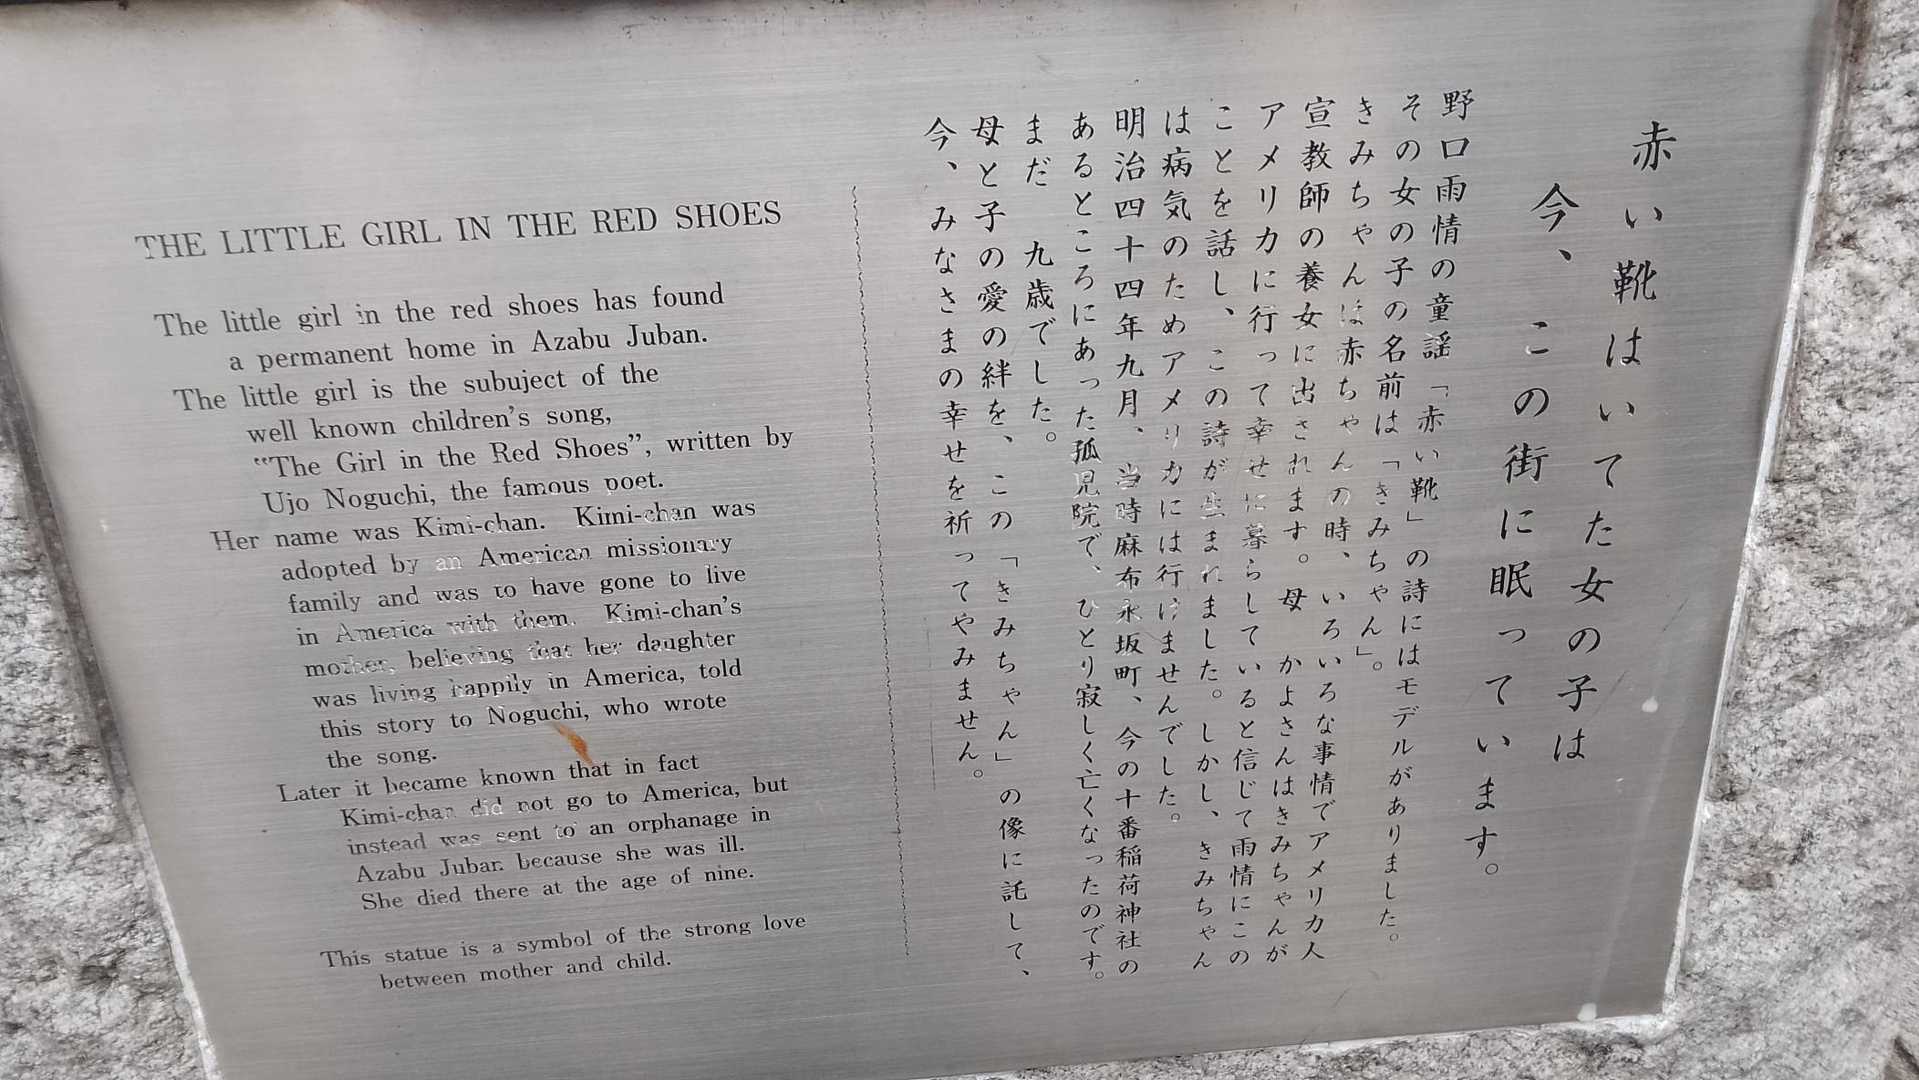 赤い靴はいてた女の子は
今、この街に眠っています。
野口雨情の童謡「赤い靴」の詩にはモデルがありました。
その女の子の名前は「きみちゃん」。
きみちゃんは赤ちゃんの時、いろいろな事情でアメリカ人
宣教師の養女に出されます。母 かよさんはきみちゃんが
アメリカに行って幸せに暮らしていると信じて雨情にこの
ことを話し、この詩が生まれました。しかし、きみちゃん
は病気のためアメリカには行けませんでした。
明治四十四年九月、当時麻布永坂町、今の十番稲荷神社の
あるところにあった孤児院で、ひとり寂しく亡くなったのです。
まだ 九歳でした。
母と子の愛の絆を、この「きみちゃん」の像に託して、
今、みなさまの幸せを祈ってやみません。
THE LITTLE GIRL IN THE RED SHOES
The little girl in the red shoes has found
a permanent home in Azabu Juban.
The little girl is the subuject of the
well known children's song,
"The Girl in the Red Shoes", written by
Ujo Noguchi, the famous poet.
Her name was Kimi-chan. Kimi-chan was
adopted by an American missionary
family and was to have gone to live
in America with them. Kimi-chan's
mother, believing that her daughter
was living happily in America, told
this story to Noguchi, who wrote
the song.
Later it became known that in fact
Kimi-chan did not go to America, but
instead was sent to an orphanage in
Azabu Juban because she was ill.
She died there at the age of nine.
This statue is a symbol of the strong love
between mother and child.